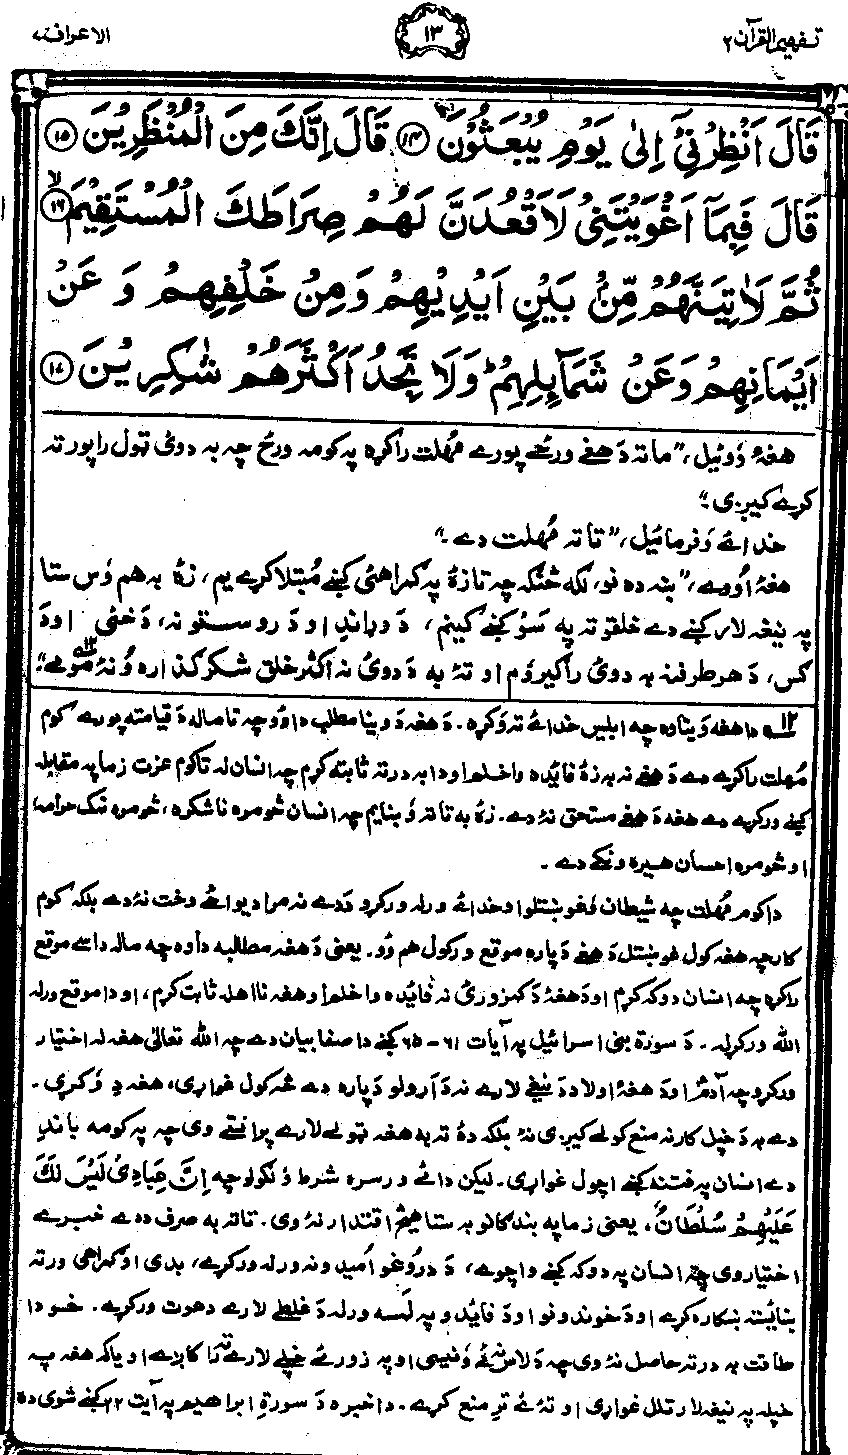 تفهيم القرآن ٢
١٣
الاعراف ٧
قَالَ اَنْظِرْنِیْۤ اِلٰی یَوْمِ یُبْعَثُوْنَ ﴿۱۴﴾ قَالَ اِنَّكَ مِنَ الْمُنْظَرِیْنَ ﴿۱۵﴾
قَالَ فَبِمَاۤ اَغْوَیْتَنِیْ لَاَقْعُدَنَّ لَهُمْ صِرَاطَكَ الْمُسْتَقِیْمَ ﴿۱۶﴾ۙ
ثُمَّ لَاٰتِیَنَّهُمْ مِّنْۢ بَیْنِ اَیْدِیْهِمْ وَمِنْ خَلْفِهِمْ وَ عَنْ
اَیْمَانِهِمْ وَعَنْ شَمَآئِلِهِمْ ؕ وَلَا تَجِدُ اَكْثَرَهُمْ شٰكِرِیْنَ ﴿۱۷﴾
هغۀ وَوئيل، ”ما ته دَ هغے ورځے پورے مُهلت راكړه په كومه ورځ چه به دوئ ټول راپورته
كړے كيږى.“
خدائے وَفرمائيل، ”تا ته مُهلت دے.“
هغۀ اُووے، ”ښه ده نو، لكه څنګه چه تا زۀ په ګمراهئ كښے مُبتلا كړے يم، زۀ به هم وَس ستا
په نيغه لار كښے دے خلقو ته په سَو كښے كينم، دَ وړاندِ او دَ روستو نه، دَ ښى او دَ
ګس، دَ هر طرف نه به دوئ راګير وَم او تۀ به دَ دوئ نه اكثر خلق شكر ګذاره وُ نۀ مومے.“ ١٢
١٢ دا هغه وَينا وه چه ابليس خدائے ته وَكړه. دَ هغه دَ وينا مطلب دا وُو چه تا ما له دَ قيامته پورے كوم
مُهلت راكړے دے دَ هغے نه به زۀ فائيده واخلم او دا به درته ثابته كړم چه انسان له تا كوم عزت زما په مقابله
كښے وركړے دے هغه دَ هغے مستحق نۀ دے. زۀ به تا ته وَ ښايم چه انسان څومره ناشكره، څومره نمك حرامه،
او څومره احسان هيره ونكے دے.
دا كوم مُهلت چه شيطان وَغوښتلو او خدائے ورله وركړو دَ دے نه مراد يوائے وخت نۀ دے بلكه كوم
كار چه هغه كول غوښتل دَ هغے دَ پاره موقع وركول هم وُو. يعنى دَ هغه مطالبه دا وه چه ما له داسے موقع
راكړه چه انسان دوكه كړم او دَ هغۀ دَ كمزورئ نه فائيده واخلم او هغه نااهله ثابت كړم، او دا موقع ورله
الله وركړله. دَ سورة بنى اسرائيل په آيات ٦١ - ٦٥ كښے دا صفا بيان دے چه الله تعالىٰ هغه له اختيار
وركړو چه آدمؑ او دَ هغۀ اولاد دَ نيغے لارے نه دَ آړولو دَ پاره دے څه كول غواړى، هغه دِ وَكړى.
دے به دَ خپل كار نه منع كولے كيږى نۀ بلكه دۀ ته به هغه ټولے لارے پرانتے وى چه په كومه باندِ
دے انسان په فتنه كښے اچول غواړى. ليكن دائے ورسره شرط وُ لګولو چه اِنَّ عِبَادِىْ لَيْسَ لَكَ
عَلَيْهِمْ سُلْطَانٌ، يعنى زما په بندګانو به ستا هيڅ اقتدار نۀ وى. تا ته به صرف دَ دے خبرے
اختيار وى چه انسان په دوكه كښے واچوے، دَ دروغو اُميدونه ورله وركړے، بدى او ګمراهى ورته
ښائسته ښكاره كړے او دَ خوندونو او دَ فائيدو په لمسه ورله دَ غلطے لارے دعوت وركړے. خو دا
طاقت به درته حاصل نۀ وى چه دَ لاس نه ئے وَنيسى او په زور ئے خپلے لارے ته راكاږے او يا كه هغه په
خپله په نيغه لار تلل غواړى او تۀ ئے ترِ منع كړے. دا خبره دَ سورةِ ابراهيم په آيت ٢٢ كښے شوى ده